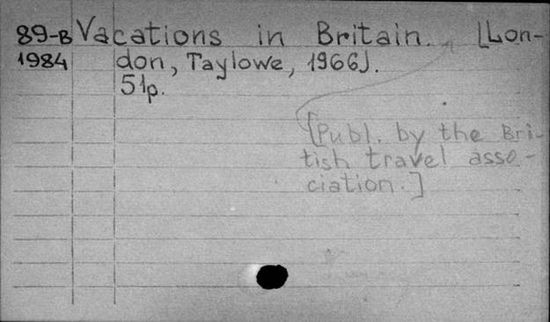 89-B Vacations in Britain. [Lon-
1984 don, Taylowe, 1966].
51p.
[Publ. by the Bri-
tish travel asso-
ciation.]